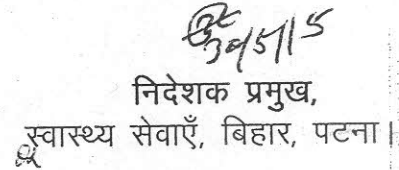 30/5/15
निदेशक प्रमुख,
स्वास्थ्य सेवाएँ, बिहार, पटना।